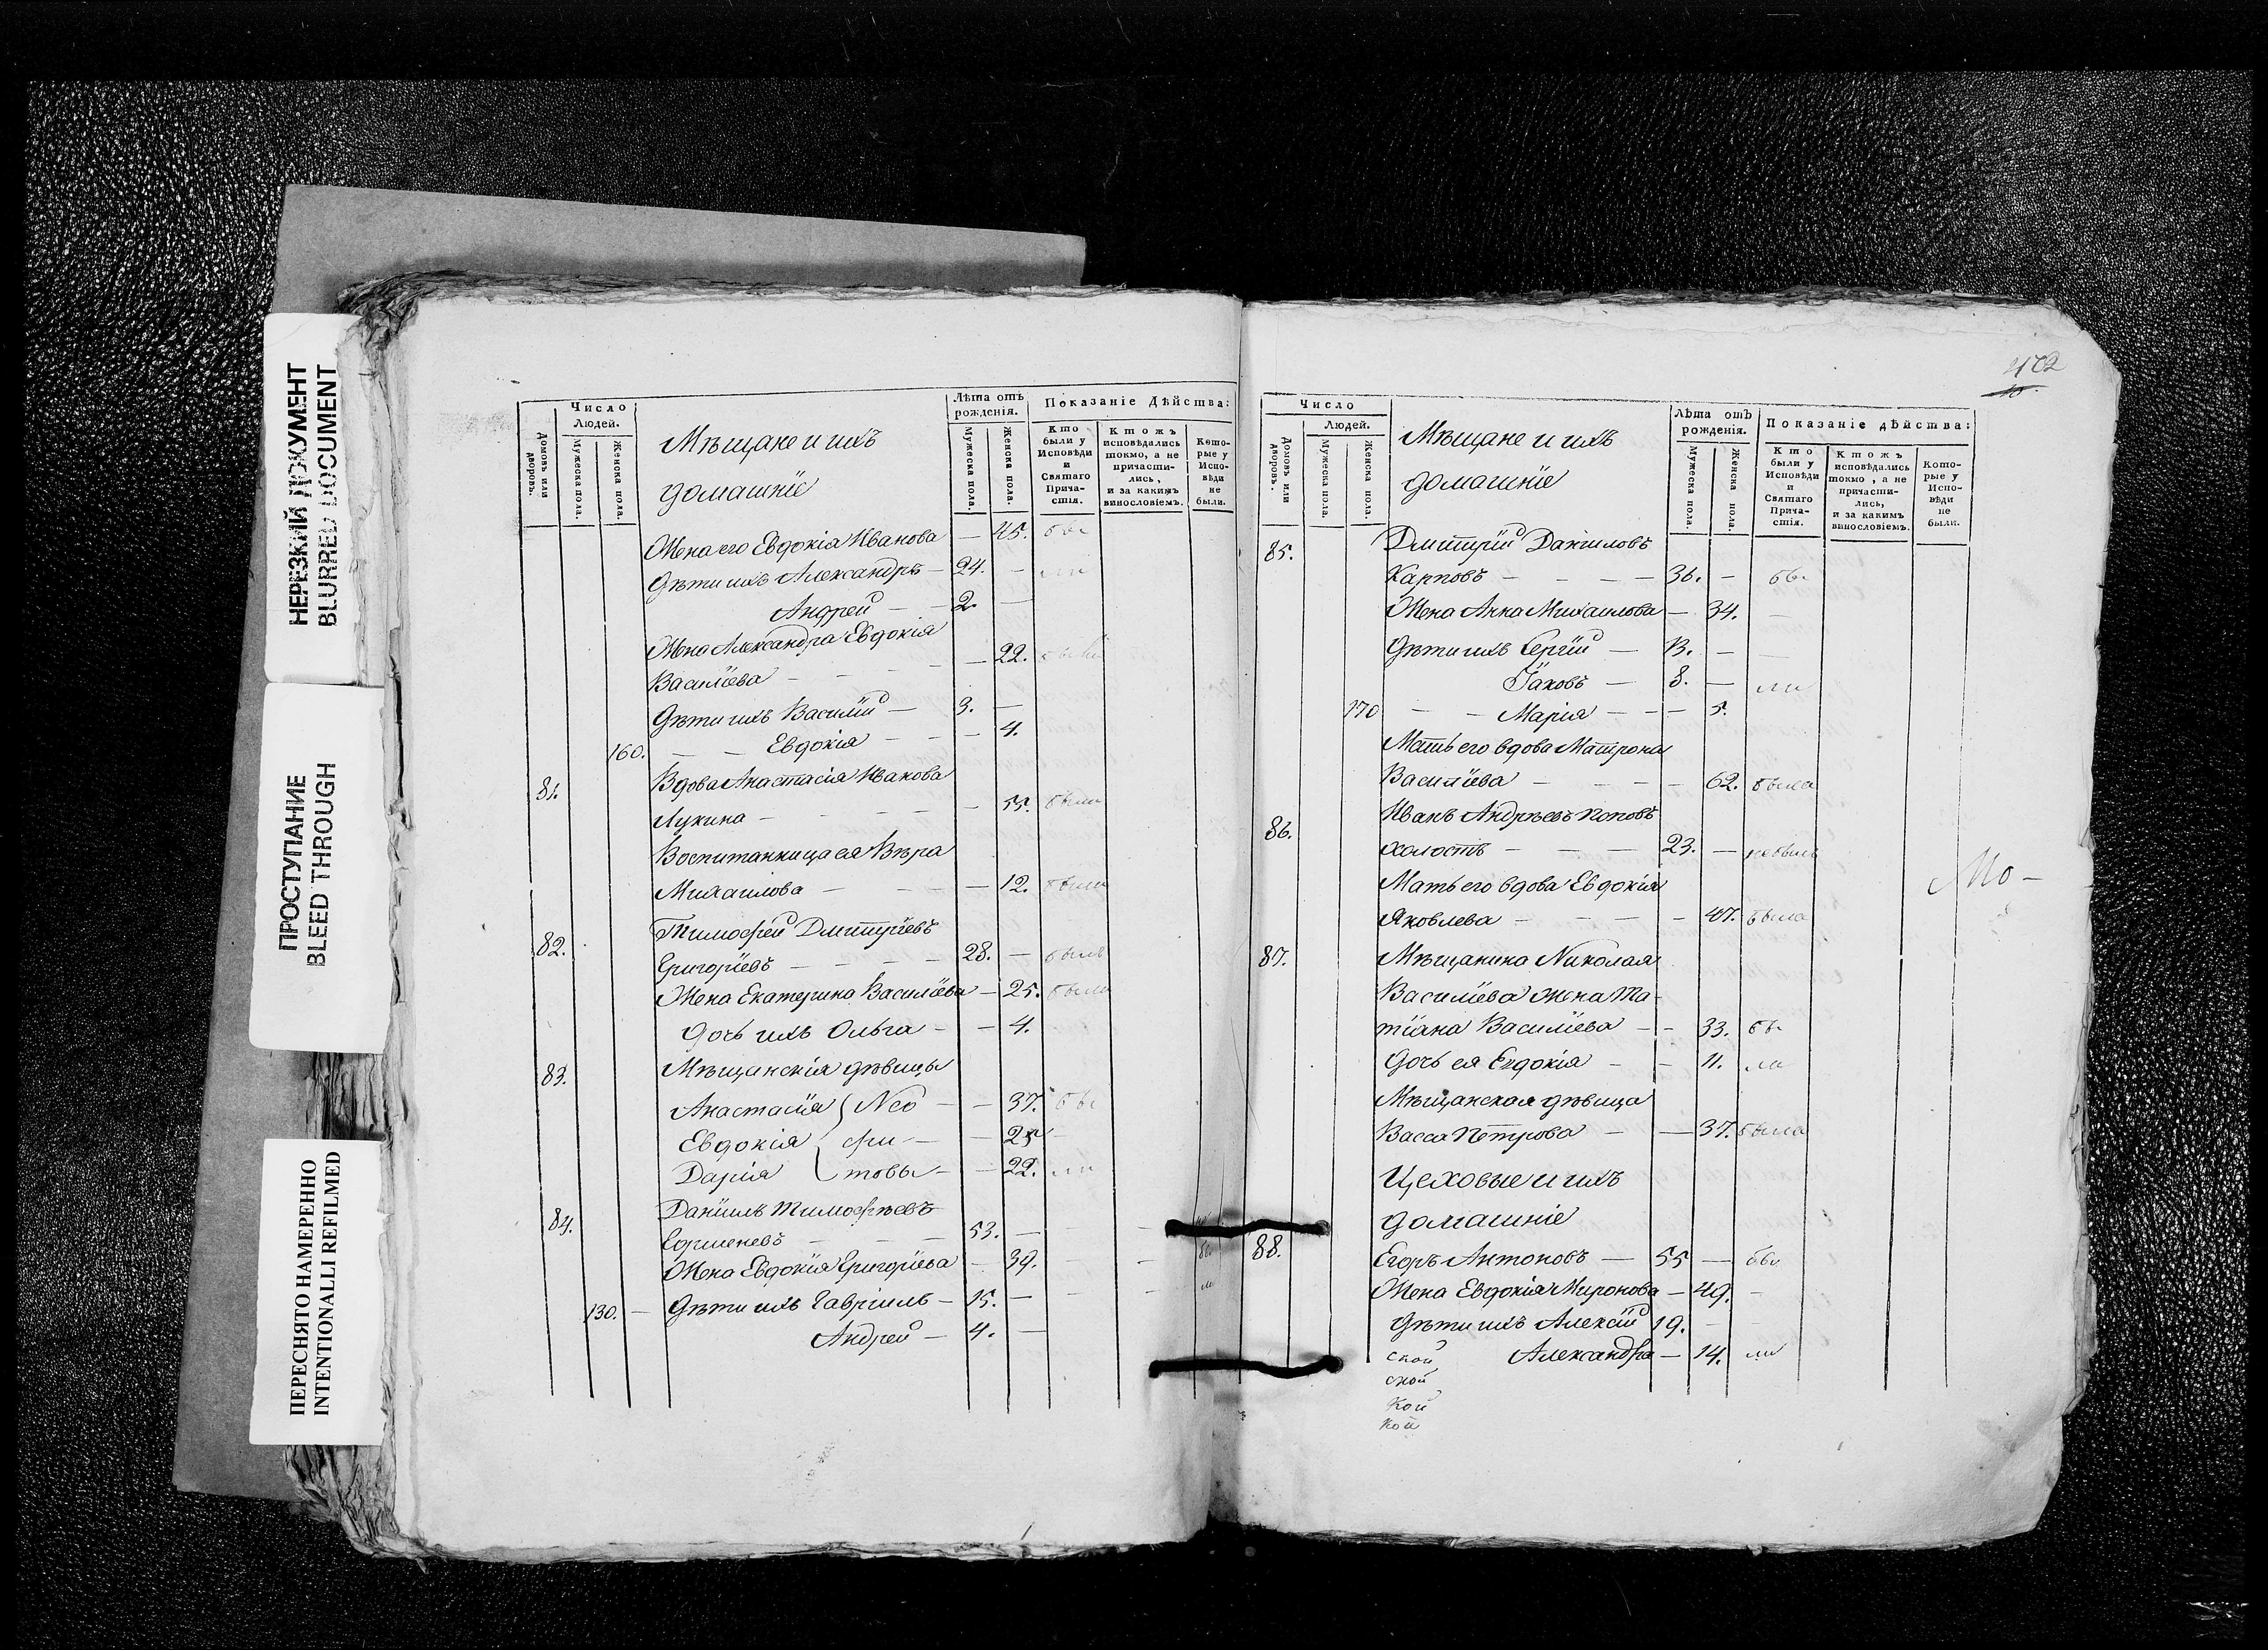 НЕРЕЗКИЙ ДОКУМЕНТ
BLURRED DOCUMENT
ПРОСТУПАНИЕ
BLEED THROUGH
ПЕРЕСНЯТО НАМЕРЕННО
INTENTIONALLI REFILMED
Число
Людей.
Домовъ или дворовъ.
Мужеска пола.
Женска пола.
Мѣщане и ихъ
домашніе
Лѣта отъ рожденія.
Мужеска пола.
Женска пола.
Показаніе Дѣйства:
Кто были у Исповѣди и Святаго Причастія.
Ктожъ исповѣдались токмо, а не причастились, и за какимъ винословіемъ.
Которые у Исповѣди не были.
Жена его Евдокія Иванова — 45. бы
Дѣти ихъ Александръ — 24. — ли
Андрей — — 2. —
Жена Александра Евдокія
Василіева — — — — 22. были
Дѣти ихъ Василій — 3. —
160. — — Евдокія — — — 4.
81. Вдова Анастасія Иванова
Лукина — — — — — 55. были
Воспитанница ея Вѣра
Михаилова — — — — 12. были
82. Тимофей Дмитріевъ
Григоріевъ — — — — 28. — былъ
Жена Екатерина Василіева — 25. были
Дочь ихъ Ольга — — 4.
83. Мѣщанскія дѣвицы
Анастасія Нео — — 37. бы
Евдокія фи — — 25 —
Дарія товы — — 22. ли
84. Даніилъ Тимофѣевъ
— — — 53. — — —
Жена Евдокія Григоріева — 39. — — бы
130. — Дѣти ихъ Гавріилъ — 15. — — — ли
Андрей — 4. —
402
10.
Число
Людей.
Домовъ или дворовъ.
Мужеска пола.
Женска пола.
Мѣщане и ихъ
домашніе
Лѣта отъ рожденія.
Мужеска пола.
Женска пола.
Показаніе дѣйства:
Кто были у Исповѣди и Святаго Причастія.
Ктожъ исповѣдались токмо, а не причастились, и за какимъ винословіемъ.
Которые у Исповѣди не были.
85. Дмитрій Даниловъ
Карповъ — — — — 36. — бы
Жена Анна Михаилова — 34. —
Дѣти ихъ Сергій — 13. — —
Іаковъ — 8. — ли
170 — — Марія — — — 5.
Мать его вдова Матрона
Василіева — — — — 62. была
86. Иванъ Андреевъ Поповъ
холостъ — — — 23. — небылъ
Мать его вдова Евдокія
Яковлева — — — — 47. была
Мо-
87. Мѣщанина Николая
Василіева жена Та-
тіана Василіева — — 33. бы
Дочь ея Евдокія — — 11. ли
Мѣщанская дѣвица
Васса Петрова — — 37. была
Цеховые и ихъ
домашніе
88. Егоръ Антоновъ — 55 — бы
Жена Евдокія Миронова — 49. —
Дѣти ихъ Алексій 19. — —
ской Александра — 14. ли
ской
кой
кой